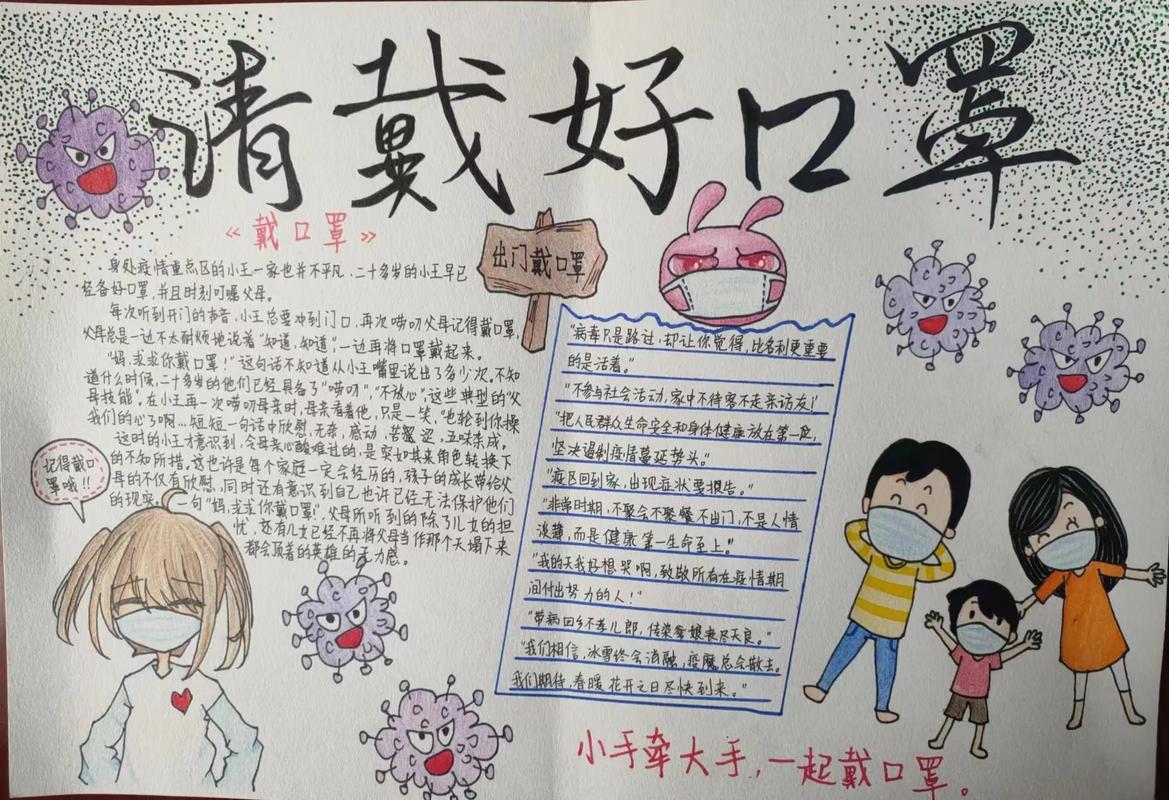 请戴好口罩
《戴口罩》
身处疫情重点区的小王一家也并不平凡，二十多岁的小王早已
经备好口罩，并且时刻叮嘱父母。
每次听到开门的声音，小王总要冲到门口，再次唠叨父母记得戴口罩，
父母总是一边不太耐烦地说着“知道，知道”，一边再将口罩戴起来。
“妈，求求你戴口罩！”这句话不知道从小王嘴里说出了多少次，不知
道什么时候，二十多岁的他们已经具备了“唠叨”，“不放心”，这些典型的“父
母技能”。在小王再一次唠叨母亲时，母亲看着他，只是一笑，“也轮到你操
我们的心了啊...短短一句话中欣慰，无奈，感动，苦涩，五味杂成。
这时的小王才意识到，令母亲心酸难过的，是突如其来角色转换下
的不知所措，这也许是每个家庭一定会经历的，孩子的成长带给父
母的不仅有欣慰，同时还有意识到自己也许已经无法保护他们
的现实，一句“妈，求求你戴口罩”，父母所听到的除了儿女的担
忧，还有儿女已经不再将父母当作那个天塌下来
都会顶着的英雄的无力感。
记得戴口
罩哦！！
出门戴口罩
“病毒只是路过，却让你觉得，比名利更重要
的是活着。”
“不参与社会活动，家中不待客不走亲访友！”
“把人民群众生命安全和身体健康放在第一位，
坚决遏制疫情蔓延势头。”
“疫区回到家，出现症状要报告。”
“非常时期，不聚会不聚餐不出门，不是人情
淡薄，而是健康第一生命至上。”
“我的天我好想哭啊，致敬所有在疫情期
间付出努力的人！”
“带病回乡不孝儿郎，传染爹娘丧尽天良。”
“我们相信，冰雪终会消融，疫魔总会散去。
我们期待，春暖花开之日尽快到来。”
小手牵大手，一起戴口罩。